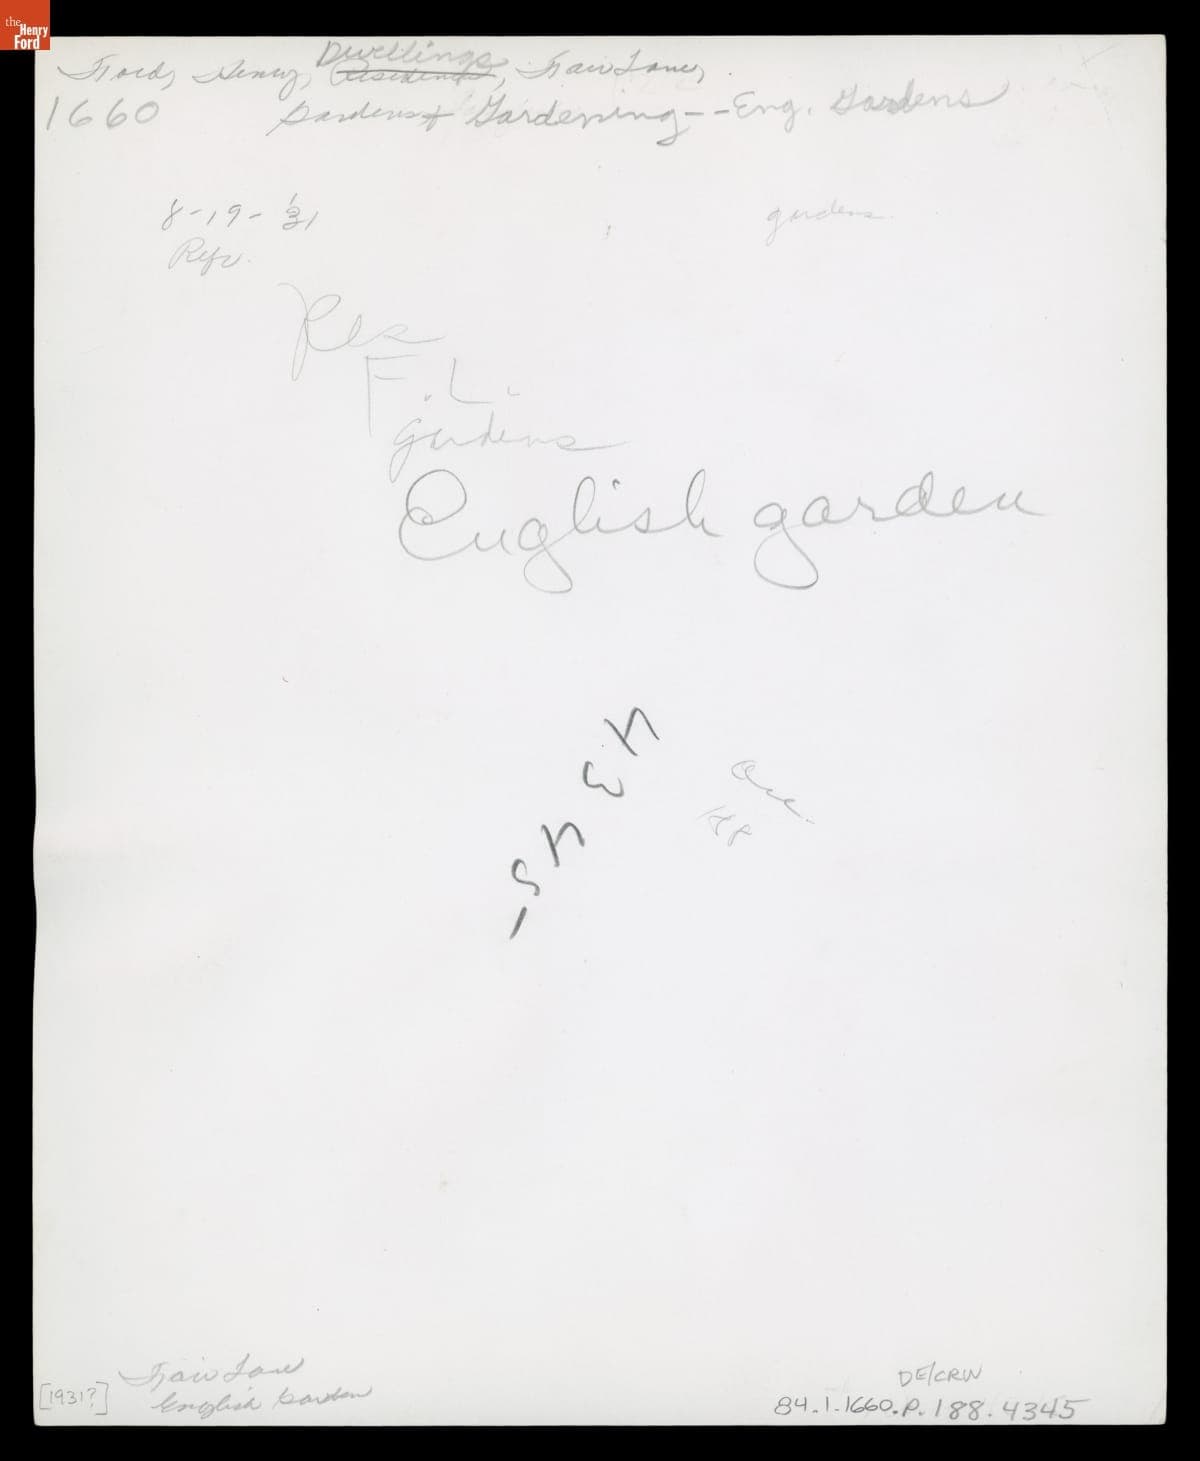 the Henry Ford
Ford, Henry, Dwellings Residence, Fair Lane,
1660 Gardens & Gardening--Eng. Gardens
8-19-'31
gardens
Res
F. L.
gardens
English garden
Acc.
Fair Lane
[1931?] English Garden
DE/CRW
84.1.1660.P.188.4345